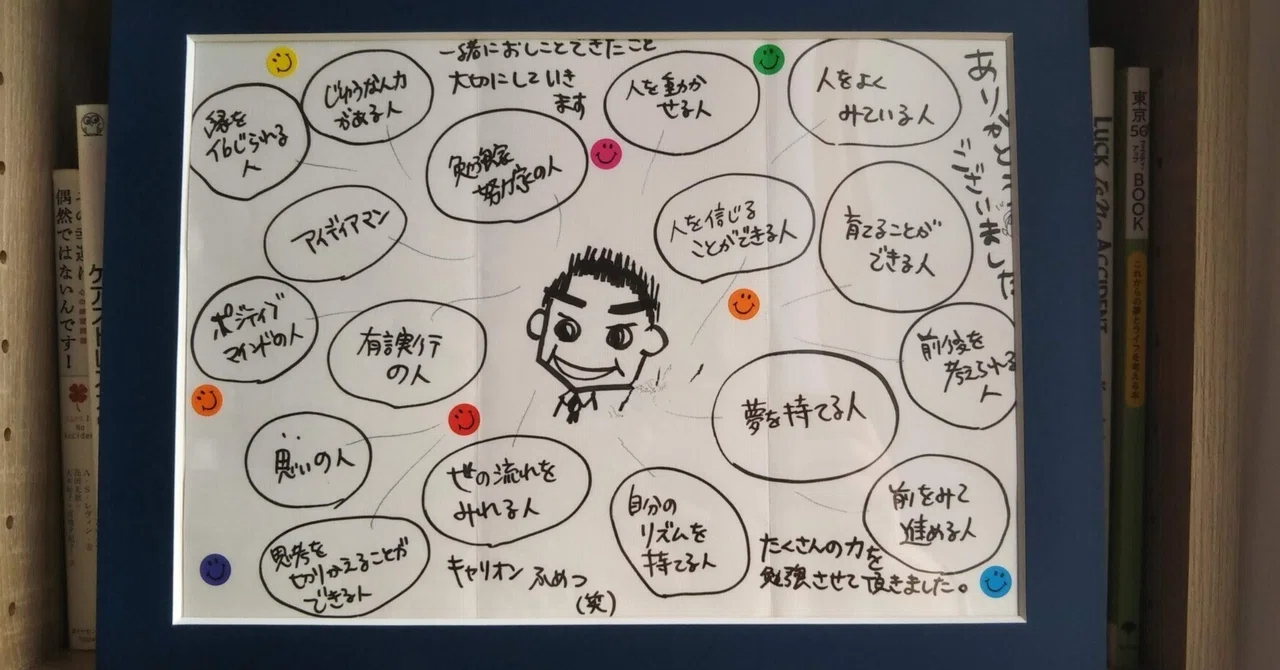 一緒におしごとできたこと
大切にしていき
ます
ありがとう
ございました
縁を
信じられる
人
じゅうなん力
がある人
勉強家
努力家の人
人を動か
せる人
人をよく
みている人
アイディアマン
人を信じる
ことができる人
育てることが
できる人
ポジティブ
マインドの人
有言実行
の人
前後を
考えられる
人
夢を持てる人
思いの人
世の流れを
みれる人
自分の
リズムを
持てる人
前をみて
進める人
思考を
切りかえることが
できる人
キャリオン ふめつ
(笑)
たくさんの力を
勉強させて頂きました。
偶然ではないんです！
ケアストレス
A・S・レヴィン
LUCK
ACCIDENT
東京
50
BOOK
これからの